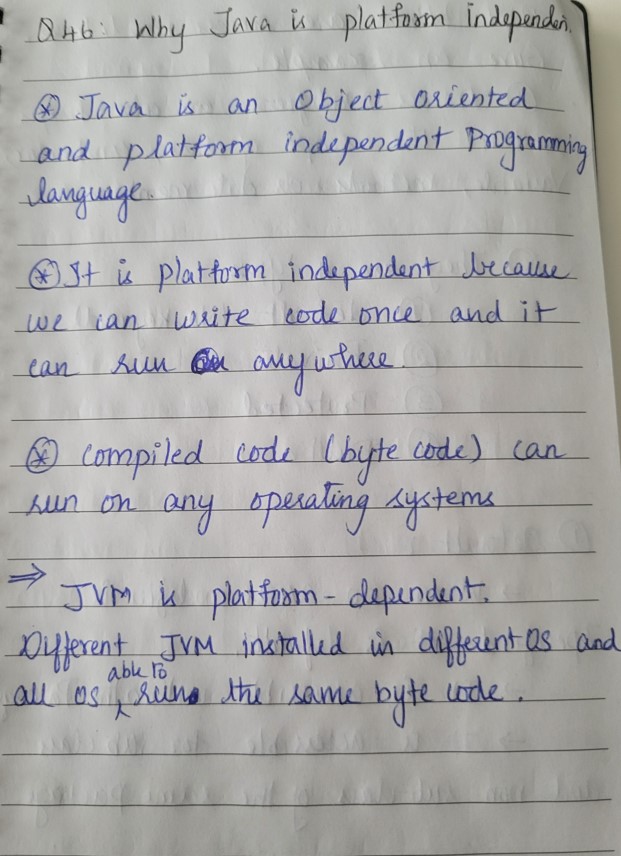 Q46: Why Java is platform independen
⊛ Java is an Object oriented
and platform independent Programming
language.
⊛ It is platform independent because
we can write code once and it
can run anywhere.
⊛ compiled code (byte code) can
run on any operating systems
⇒ JVM is platform-dependent.
Different JVM installed in different OS and
able to
all os run the same byte code.